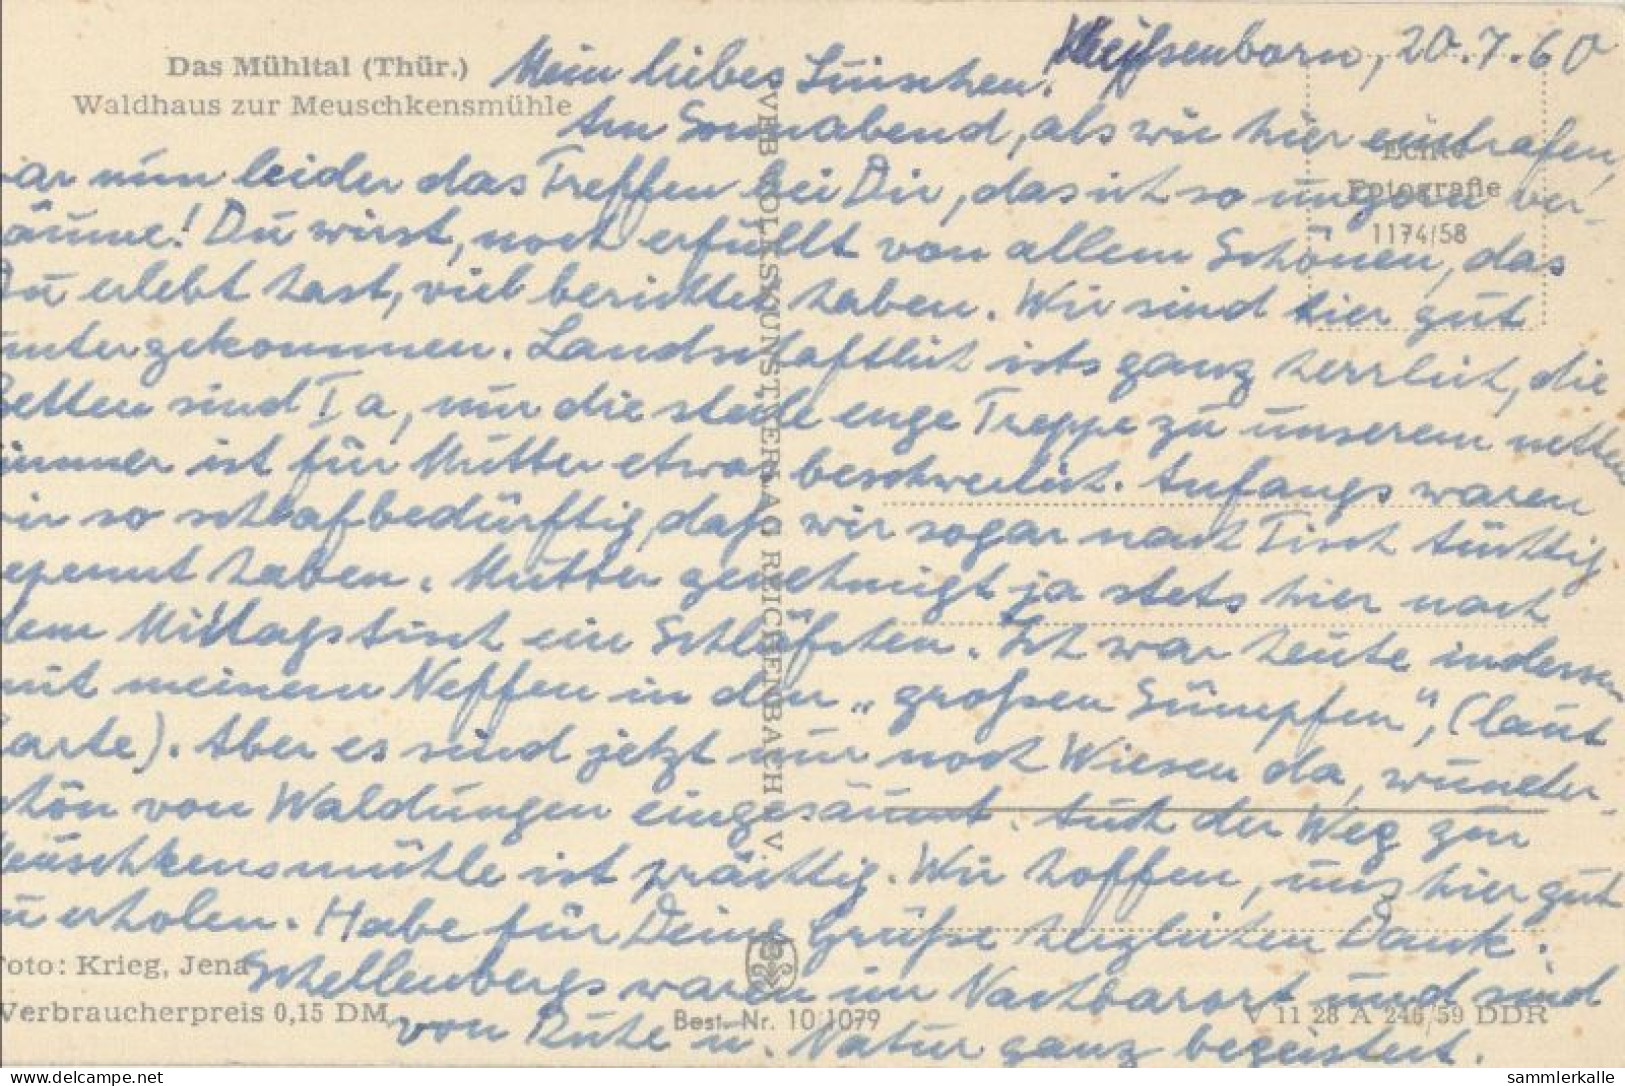 Das Mühltal (Thür.)
Waldhaus zur Meuschkensmühle
Weißenborn, 20.7.60
Mein liebes Luischen!
Am Sonnabend, als wir hier eintrafen,
war nun leider das Treffen bei Dir, das ich so ungern ver-
säume! Du wirst, noch erfüllt von allem Schönen, das
Du erlebt hast, viel berichtet haben. Wir sind hier gut
untergekommen. Landschaftlich ists ganz herrlich, die
Betten sind Ia, nur die steile enge Treppe zu unserem netten
Zimmer ist für Mutter etwas beschwerlich. Anfangs waren
wir so schlafbedürftig, daß wir sogar nach Tisch tüchtig
gepennt haben. Mutter genehmigt ja stets hier nach
dem Mittagstisch ein Schläfchen. Ich war heute indessen
mit meinem Neffen in den „großen Sümpfen", (laut
Karte). Aber es sind jetzt nur noch Wiesen da, wunder-
schön von Waldungen eingesäumt. Auch der Weg zur
Meuschkensmühle ist prächtig. Wir hoffen, uns hier gut
zu erholen. Habe für Deine Grüße herzlichen Dank.
Schellenbergs waren im Nachbarort und sind
von Ruhe u. Natur ganz begeistert.
Echte
Fotografie
1174/58
VEB VOLKSKUNSTVERLAG REICHENBACH V.
Foto: Krieg, Jena
Verbraucherpreis 0,15 DM
Best.-Nr. 10/1079
V 11 28 A 246/59 DDR
https://www.delcampe.net
sammlerkalle